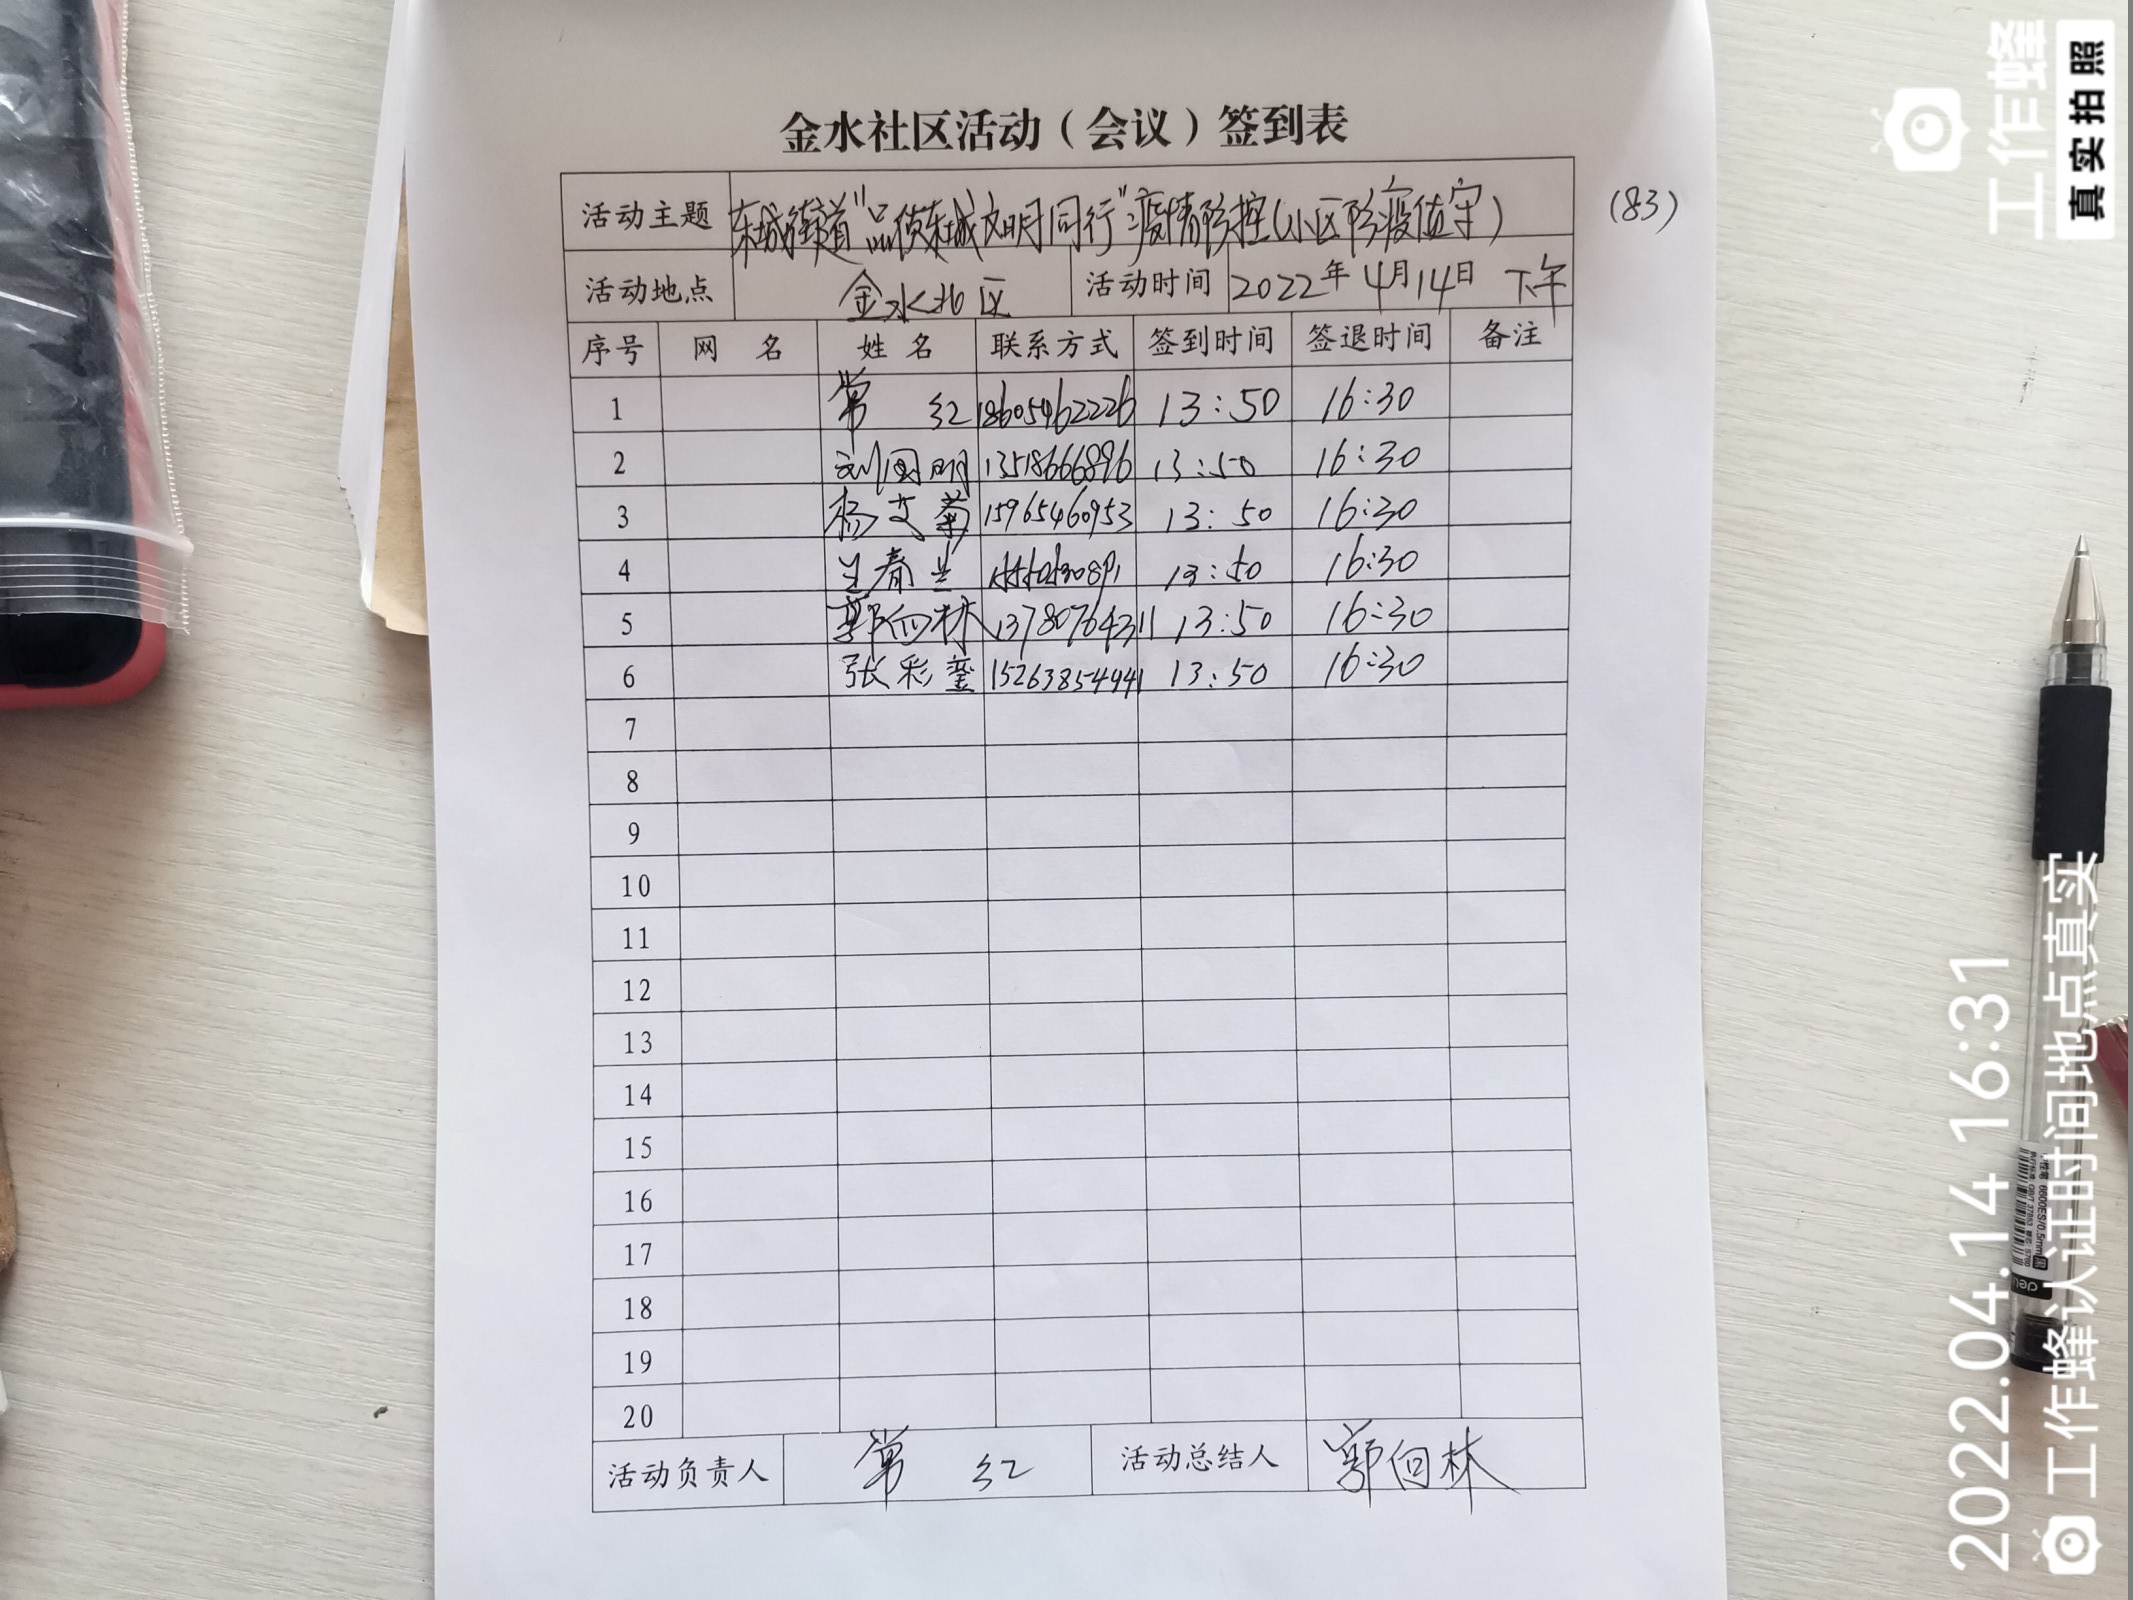 金水社区活动（会议）签到表
(83)
活动主题 东城街道"品质东城文明同行"疫情防控(小区防疫值守)
活动地点 金水北区 活动时间 2022年4月14日 下午
序号 网 名 姓 名 联系方式 签到时间 签退时间 备注
1 常 红 18605462226 13:50 16:30
2 刘国明 13518666896 13:50 16:30
3 杨艾菊 15965460953 13:50 16:30
4 王春兰 13:50 16:30
5 郭向林 13780764311 13:50 16:30
6 张彩銮 15263854941 13:50 16:30
7
8
9
10
11
12
13
14
15
16
17
18
19
20
活动负责人 常 红 活动总结人 郭向林
工作蜂
真实拍照
2022.04.14 16:31
工作蜂认证时间地点真实
deli